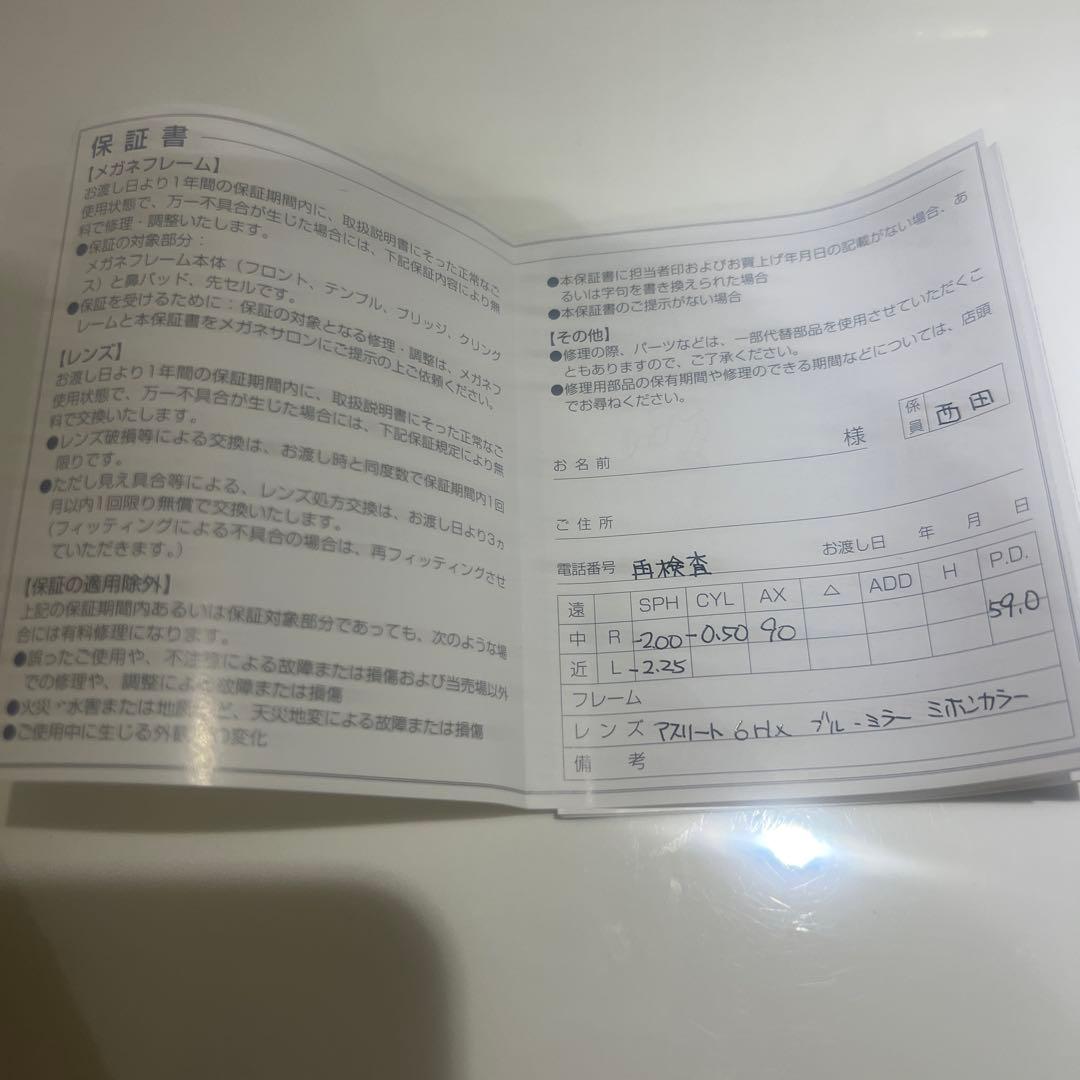 保証書
【メガネフレーム】
お渡し日より1年間の保証期間内に、取扱説明書にそった正常なご
使用状態で、万一不具合が生じた場合には、下記保証内容により無
料で修理・調整いたします。
●保証の対象部分：
メガネフレーム本体（フロント、テンプル、ブリッジ、クリング
ス）と鼻パッド、先セルです。
●保証を受けるために：保証の対象となる修理・調整は、メガネフ
レームと本保証書をメガネサロンにご提示の上ご依頼ください。
【レンズ】
お渡し日より1年間の保証期間内に、取扱説明書にそった正常なご
使用状態で、万一不具合が生じた場合には、下記保証規定により無
料で交換いたします。
●レンズ破損等による交換は、お渡し時と同度数で保証期間内1回
限りです。
●ただし見え具合等による、レンズ処方交換は、お渡し日より3ヵ
月以内1回限り無償で交換いたします。
（フィッティングによる不具合の場合は、再フィッティングさせ
ていただきます。）
【保証の適用除外】
上記の保証期間内あるいは保証対象部分であっても、次のような場
合には有料修理になります。
●誤ったご使用や、不注意による故障または損傷および当売場以外
での修理や、調整による故障または損傷
●火災・水害または地震など、天災地変による故障または損傷
●ご使用中に生じる外観の変化
●本保証書に担当者印およびお買上げ年月日の記載がない場合、あ
るいは字句を書き換えられた場合
●本保証書のご提示がない場合
【その他】
●修理の際、パーツなどは、一部代替部品を使用させていただくこ
ともありますので、ご了承ください。
●修理用部品の保有期間や修理のできる期間などについては、店頭
でお尋ねください。
係員 西田
お名前 様
ご住所
電話番号 再検査 お渡し日 年 月 日
遠 SPH CYL AX △ ADD H P.D.
中 R -2.00 -0.50 90 59.0
近 L -2.25
フレーム
レンズ アスリート 6Hx ブルーミラー ミホンカラー
備考